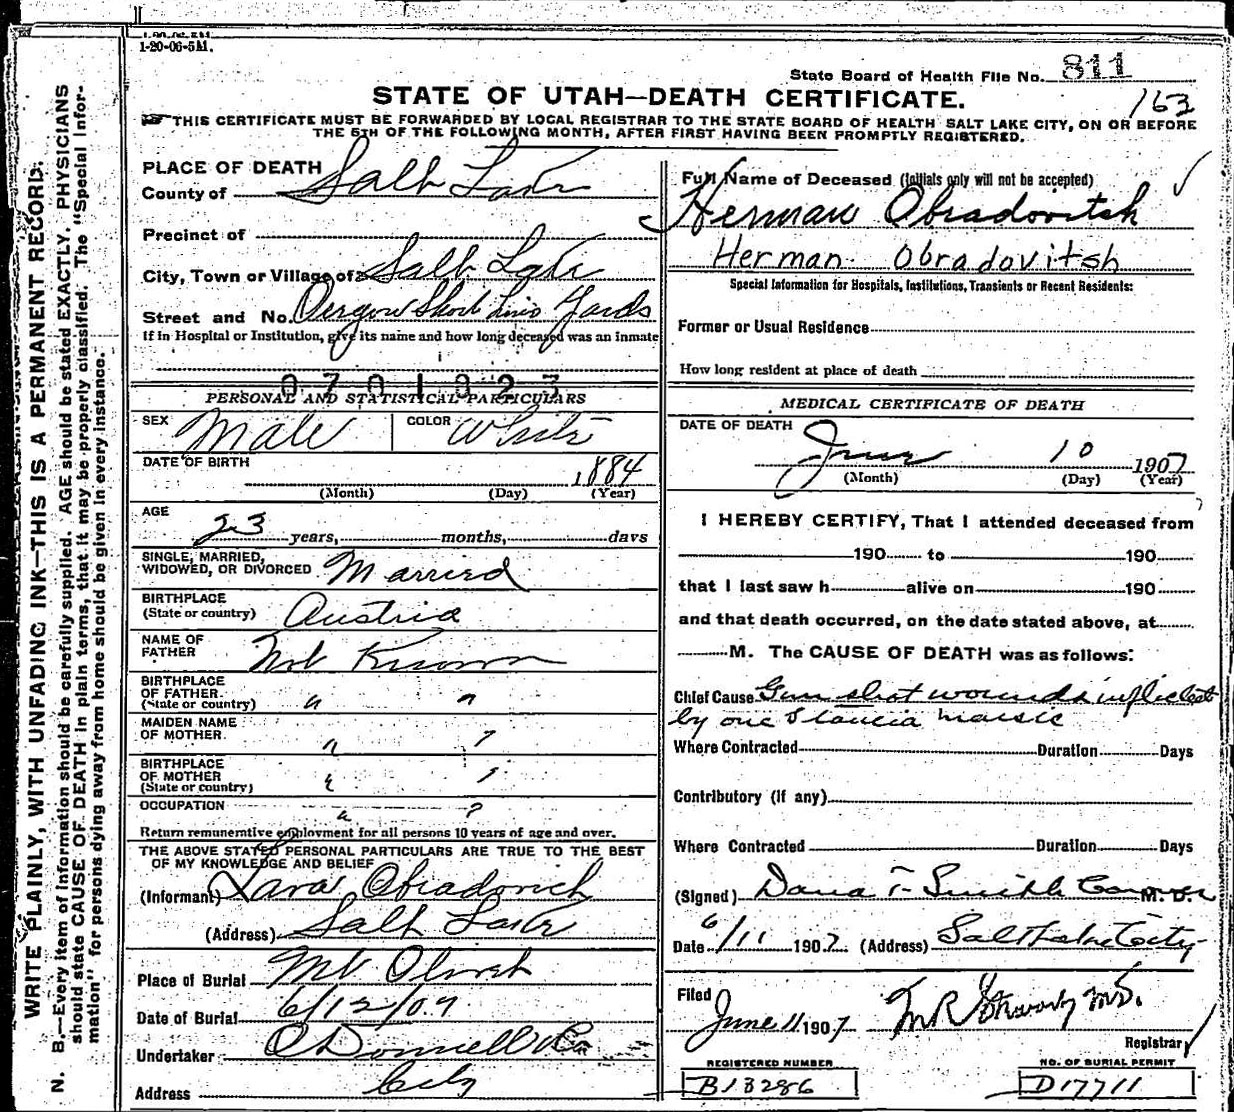 1-20-06-5M.
State Board of Health File No. 811
STATE OF UTAH—DEATH CERTIFICATE.
163
THIS CERTIFICATE MUST BE FORWARDED BY LOCAL REGISTRAR TO THE STATE BOARD OF HEALTH SALT LAKE CITY, ON OR BEFORE
THE 5TH OF THE FOLLOWING MONTH, AFTER FIRST HAVING BEEN PROMPTLY REGISTERED.
WRITE PLAINLY, WITH UNFADING INK—THIS IS A PERMANENT RECORD.
N. B.—Every item of information should be carefully supplied. AGE should be stated EXACTLY. PHYSICIANS
should state CAUSE OF DEATH in plain terms, that it may be properly classified. The "Special Infor-
mation" for persons dying away from home should be given in every instance.
PLACE OF DEATH
County of Salt Lake
Precinct of
City, Town or Village of Salt Lake
Street and No. Oregon Short Line Yards
If in Hospital or Institution, give its name and how long deceased was an inmate
0701023
PERSONAL AND STATISTICAL PARTICULARS
SEX Male COLOR White
DATE OF BIRTH 1884
(Month) (Day) (Year)
AGE
23 years, months, days
SINGLE, MARRIED,
WIDOWED, OR DIVORCED Married
BIRTHPLACE
(State or country) Austria
NAME OF
FATHER Not Known
BIRTHPLACE
OF FATHER
(State or country) " "
MAIDEN NAME
OF MOTHER " "
BIRTHPLACE
OF MOTHER
(State or country) " "
OCCUPATION " ?
Return remunerative employment for all persons 10 years of age and over.
THE ABOVE STATED PERSONAL PARTICULARS ARE TRUE TO THE BEST
OF MY KNOWLEDGE AND BELIEF
(Informant) Obradovich
(Address) Salt Lake
Place of Burial Mt Olivet
Date of Burial 6/12/07
Undertaker O'Donnell & Co
Address City
Full Name of Deceased (Initials only will not be accepted)
Herman Obradovitsh
Herman Obradovitsh
Special Information for Hospitals, Institutions, Transients or Recent Residents:
Former or Usual Residence
How long resident at place of death
MEDICAL CERTIFICATE OF DEATH
DATE OF DEATH
June 10 1907
(Month) (Day) (Year)
I HEREBY CERTIFY, That I attended deceased from
190 to 190
that I last saw h alive on 190
and that death occurred, on the date stated above, at
M. The CAUSE OF DEATH was as follows:
Chief Cause Gun shot wounds inflicted
by one
Where Contracted Duration Days
Contributory (if any)
Where Contracted Duration Days
(Signed) Dana T. Smith Coroner M. D.
Date 6/11 1907 (Address) Salt Lake City
Filed
June 11 1907 M.D.
Registrar
REGISTERED NUMBER
B13286
NO. OF BURIAL PERMIT
D17711